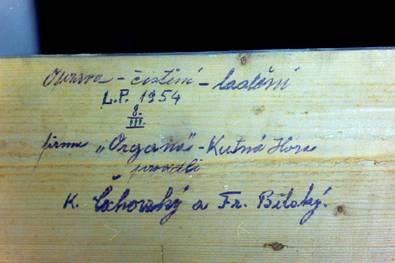 Oprava - čistění - ladění
L.P. 1954
8.
III.
firma „Organa" - Kutná Hora
provedli
K. Čahovský a Fr. Bílský.